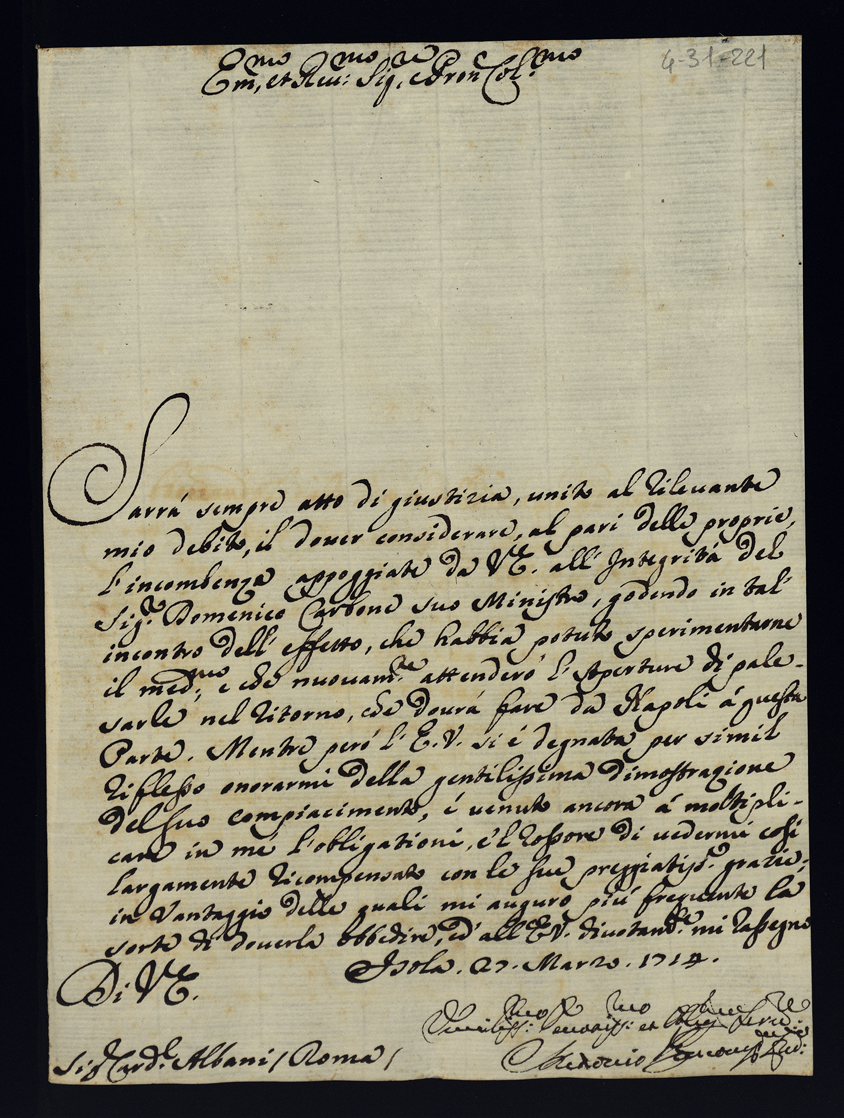 4-31-221
Em.mo et Reu:mo Sig.re e Pron Col.mo
Sarrá sempre atto di giustizia, unito al rileuante
mio debito, il douer considerare, al pari delle proprie,
l'incombenza appoggiate da VE. all'Integritá del
Sig.re Domenico Carbone suo Ministro, godendo in tal'
incontro dell'effetto, che habbia potuto sperimentarne
il med.mo e che nuouam.te attenderó l'Aperture di pale-
sarle nel ritorno, che dourá fare da Napoli á questa
Parte. Mentre peró l'E.V. si é degnata per simil
riflesso onorarmi della gentilissima dimostrazione
del suo compiacimento, é uenuto ancora á moltipli-
care in me l'obligationi, é'l rossore di uedermi cosí
largamente ricompensato con le sue preggiatiss.e grazie;
in Vantaggio delle quali mi auguro piú frequente la
sorte di douerla obbedire, ed' all'EV. diuotam.te mi rassegno
Di VE. Isola. 27. Marzo. 1714.
Vmiliss:mo et Seru:re
Sig.r Card.l Albani / Roma /